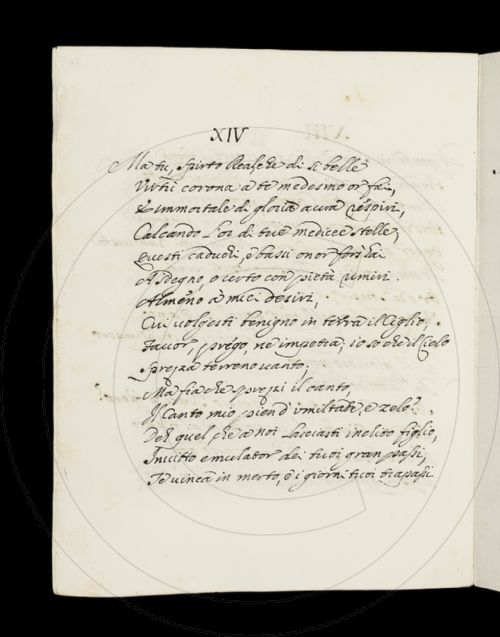 XIV
Ma tu, Spirto Real, che di sì belle
Virtù corona a te medesmo or fai,
E immortale di gloria aura respiri,
Calcando l'or di tue medicee stelle,
Questi caduchi, e bassi onor
A sdegno, o certo con pietà rimiri.
Almeno a miei desiri,
Cui volgesti benigno in terra il Ciglio,
Favor, prego, ne impetra; io so che il Cielo
Sprezza terreno vanto;
Ma fia che prezzi il canto,
Il Canto mio pien d'umiltade, e zelo.
Deh quel che a noi lasciasti inclito figlio,
Invitto emulator dei tuoi gran passi,
Te vinca in merto, e i giorni tuoi trapassi